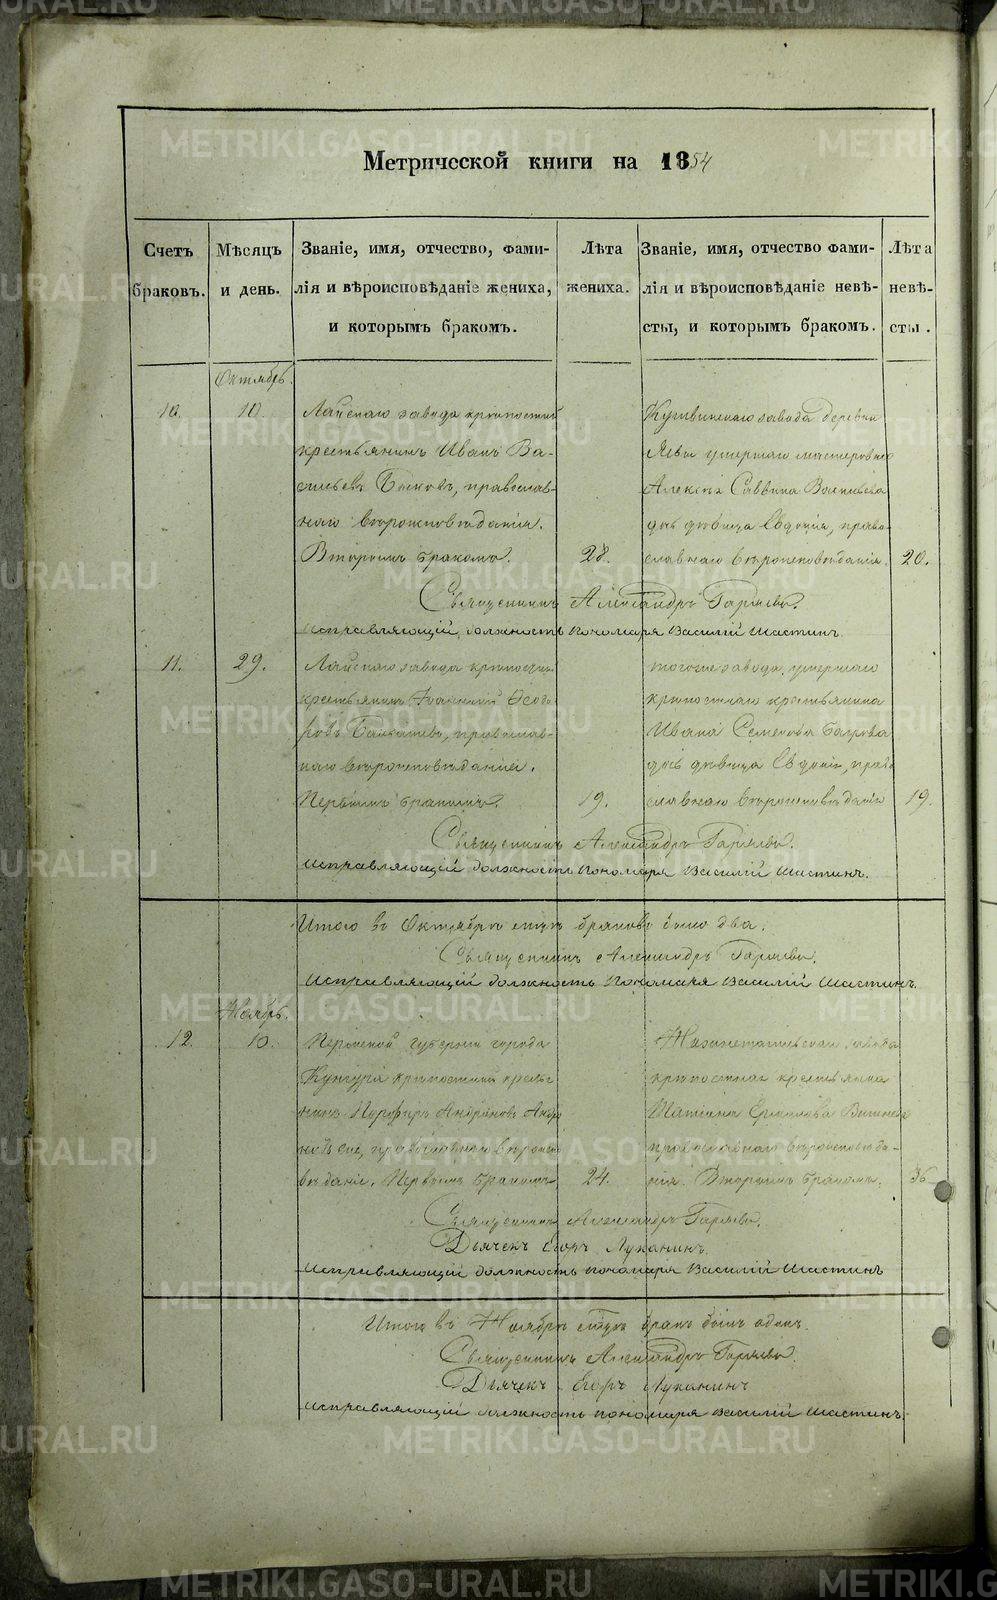 Метрической книги на 1854
Счетъ браковъ.
Мѣсяцъ и день.
Званіе, имя, отчество, фами-
лія и вѣроисповѣданіе жениха,
и которымъ бракомъ.
Лѣта жениха.
Званіе, имя, отчество фами-
лія и вѣроисповѣданіе невѣ-
сты, и которымъ бракомъ.
Лѣта невѣ-
сты.
Октябрь.
10. 10.
Лайскаго завода крѣпостный
крестьянинъ Иванъ Ва-
сильевъ православ-
наго вѣроисповѣданія.
Вторымъ бракомъ. 28.
Кушвинскаго завода деревни
умершаго мастероваго
Алексѣя Саввина
дочь дѣвица Евдокія, право-
славнаго вѣроисповѣданія. 20.
Священникъ Александръ
Исправляющій должность Пономаря Василій Шастинъ
11. 29.
Лайскаго завода
крестьянинъ
православ-
наго вѣроисповѣданія.
Первымъ бракомъ. 19.
тогоже завода умершаго
крѣпостнаго крестьянина
Ивана Семенова
дочь дѣвица Евдокія, право-
славнаго вѣроисповѣданія 19.
Священникъ Александръ
Исправляющій должность Пономаря Василій Шастинъ.
Итого въ Октябрѣ сихъ браковъ было два.
Священникъ Александръ
Исправляющій должность Пономаря Василій Шастинъ.
Ноябрь.
12. 10.
Пермской губерніи города
Кунгура
Порфиръ Андроновъ
православнаго вѣроиспо-
вѣданія. Первымъ бракомъ 24.
Нижнетагильскаго завода
крѣпостная крестьянка
Татіана
православнаго вѣроисповѣда-
нія Вторымъ бракомъ. 36
Священникъ Александръ
Дьячекъ Егоръ Луканинъ.
Исправляющій должность пономаря Василій Шастинъ
Итого въ Ноябрѣ бракъ былъ одинъ.
Священникъ Александръ
Дьячекъ Егоръ Луканинъ
Исправляющій должность пономаря Василій Шастинъ.
METRIKI.GASO-URAL.RU